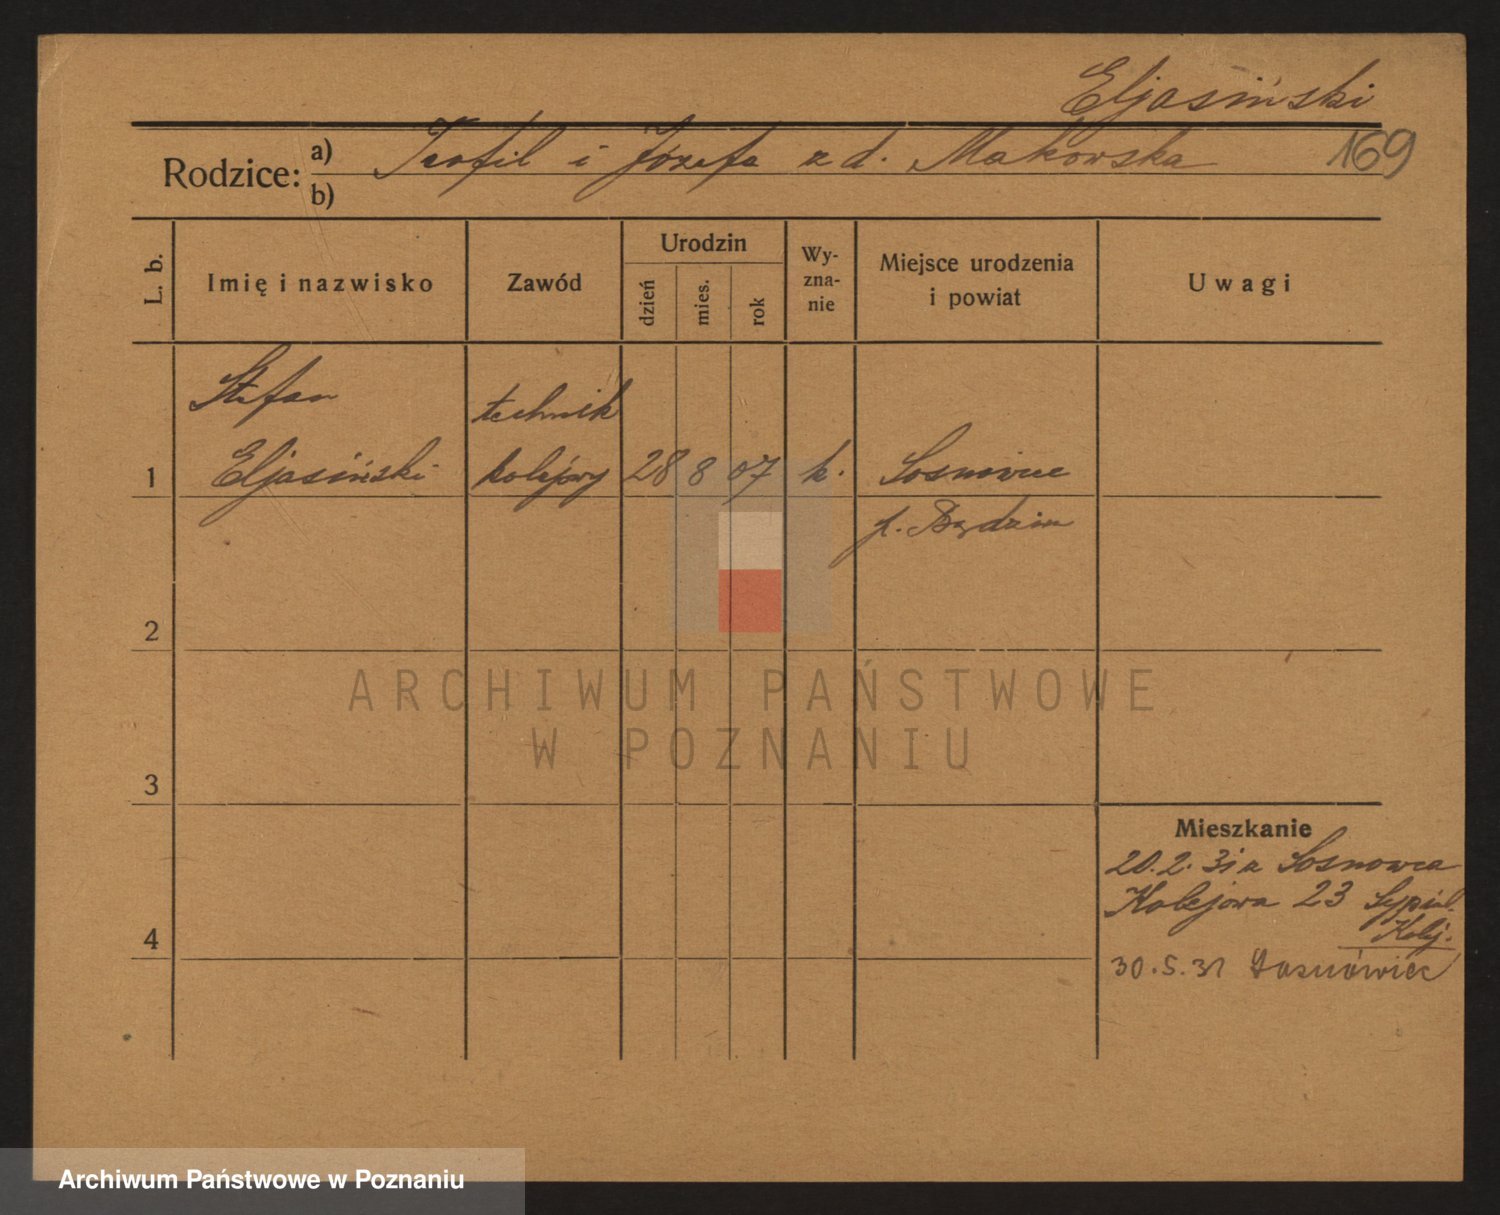 Eljasiński
Rodzice: a) Teofil i Józefa z d. Makowska 169
b)
L. b. Imię i nazwisko Zawód Urodzin dzień mies. rok Wyznanie Miejsce urodzenia i powiat Uwagi
Stefan technik
1 Eljasiński kolejowy 28 8 07 k. Sosnowiec
p. Będzin
2
ARCHIWUM PAŃSTWOWE
W POZNANIU
3
Mieszkanie
20.2.31 z Sosnowca
Kolejowa 23
Kolej.
4
30.5.31 Sosnówiec
Archiwum Państwowe w Poznaniu